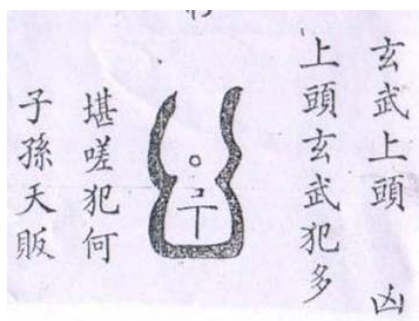 玄武上頭 凶
上頭玄武犯多
堪嗟犯何
子孫夭販